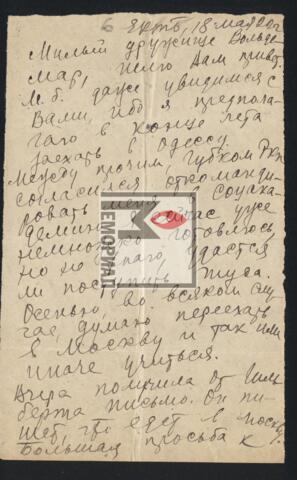 6
18 мая 22г
Милый дружище Вольде
мар, шлю Вам привет.
М. б. даже увидимся с
Вами, ибо я предпола
гаю в конце лета
заехать в Одессу.
Между прочим, Губком РКП
согласился откоманди
ровать меня в Соцака
демию. Я сейчас уже
немножко готовлюсь,
но не знаю, удастся
ли поступить туда.
Осенью, во всяком слу
чае, думаю переехать
в Москву и так или
иначе учиться.
Вчера получила от Гиль
берта письмо. Он пи
шет, что едет в Москву.
Большая просьба к
МЕМОРИАЛ